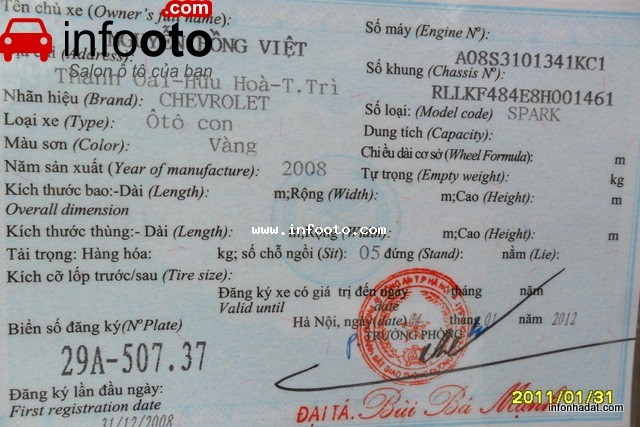 Tên chủ xe (Owner's full name):
infooto.com
HỒNG VIỆT
Salon ô tô của bạn
(Address):
Thanh Oai-Hữu Hoà-T.Trì
Nhãn hiệu (Brand): CHEVROLET
Loại xe (Type): Ôtô con
Màu sơn (Color): Vàng
Năm sản xuất (Year of manufacture): 2008
Kích thước bao:-Dài (Length): m;Rộng (Width): m;Cao (Height): m
Overall dimension
Kích thước thùng:- Dài (Length): m;Rộng (Width): m;Cao (Height): m
www.infooto.com
Tải trọng: Hàng hóa: kg; số chỗ ngồi (Sit): 05 đứng (Stand): nằm (Lie):
Kích cỡ lốp trước/sau (Tire size):
Số máy (Engine Nº):
A08S3101341KC1
Số khung (Chassis Nº):
RLLKF484E8H001461
Số loại: (Model code) SPARK
Dung tích (Capacity):
Chiều dài cơ sở (Wheel Formula): m
Tự trọng (Empty weight): kg
Đăng ký xe có giá trị đến ngày tháng năm
Valid until date
Hà Nội, ngày (date) 04 tháng 01 năm 2012
TRƯỞNG PHÒNG
Biển số đăng ký (Nº Plate)
29A-507.37
Đăng ký lần đầu ngày:
First registration date
31/12/2008
ĐẠI TÁ. Bùi Bá Mạnh
2011/01/31
infonhadat.com